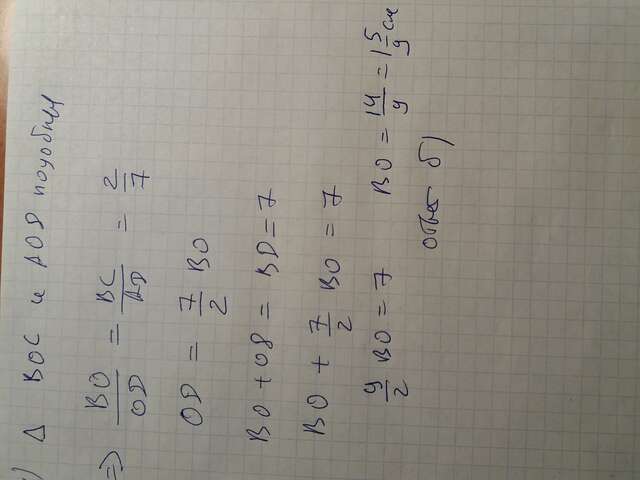 ) Δ BOC и AOD подобны
=> BO/OD = BC/AD = 2/7
OD = 7/2 BO
BO + OD = BD = 7
BO + 7/2 BO = 7
9/2 BO = 7 BO = 14/9 = 1 5/9 см
ответ б)